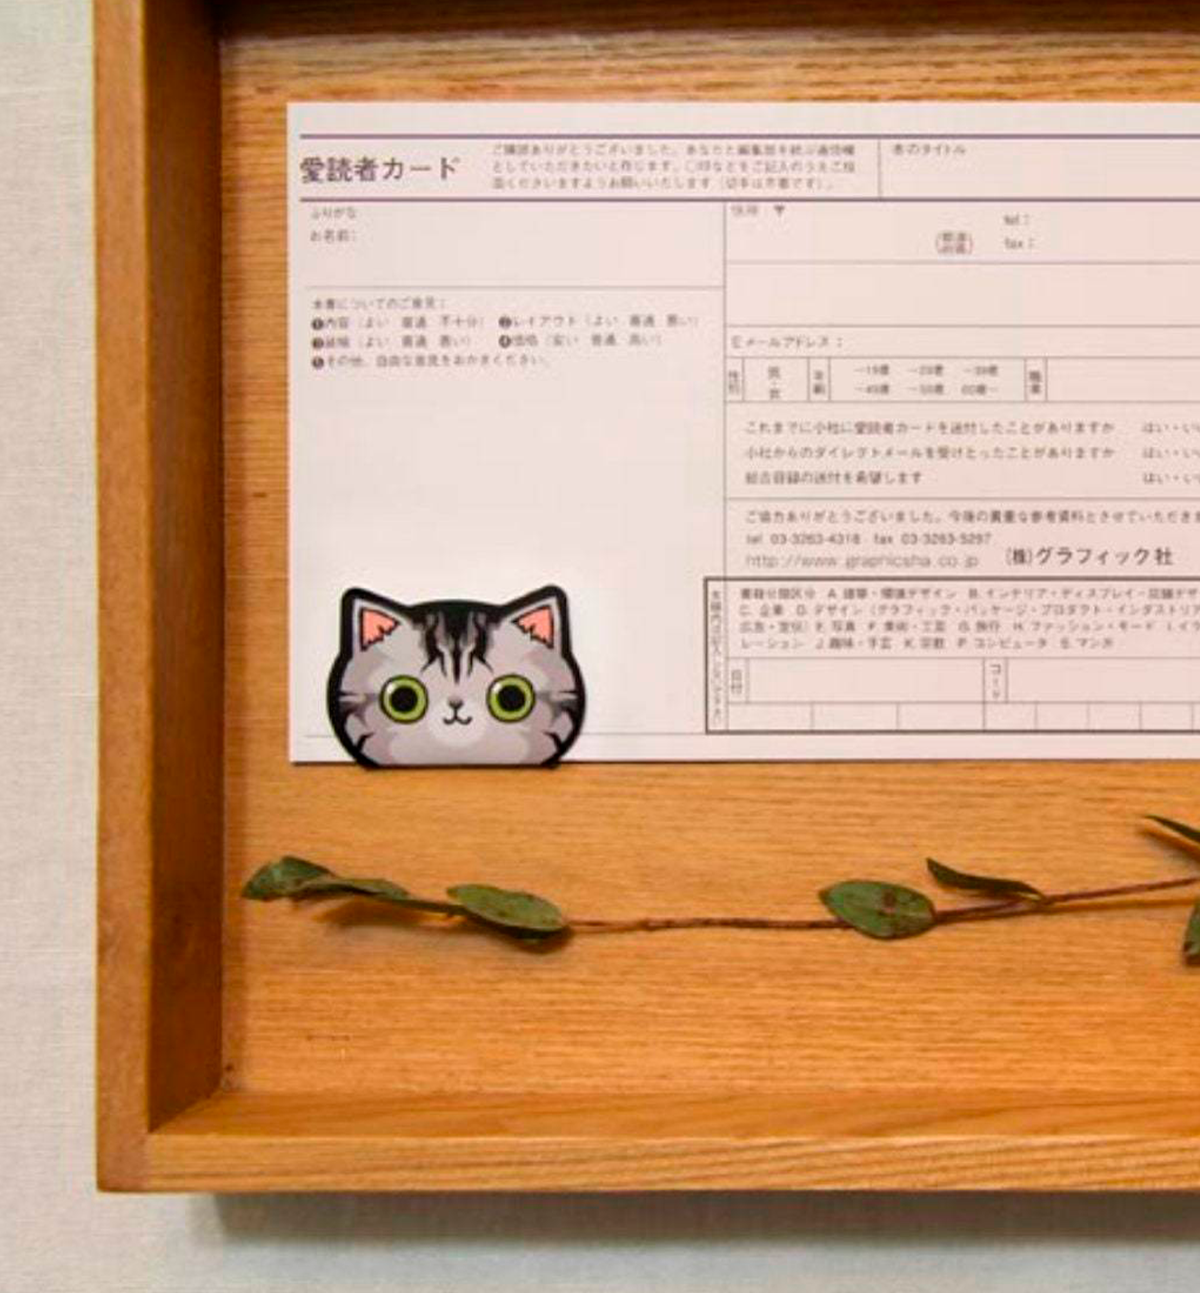 愛読者カード
ご購読ありがとうございました。あなたと編集部を結ぶ通信欄
としていただきたいと存じます。○印などをご記入のうえご投
函くださいますようお願いいたします（切手は不要です）。
本のタイトル
ふりがな
お名前：
本書についてのご意見：
❶内容（よい 普通 不十分） ❷レイアウト（よい 普通 悪い）
❸装幀（よい 普通 悪い） ❹価格（安い 普通 高い）
❺その他、自由な意見をおかきください。
住所 〒
tel：
fax：
Eメールアドレス：
性別 男・女 年齢 〜19歳 〜29歳 〜39歳
〜49歳 〜59歳 60歳〜 職業
これまでに小社に愛読者カードを送付したことがありますか はい・い
小社からのダイレクトメールを受けとったことがありますか はい・い
総合目録の送付を希望します はい・い
ご協力ありがとうございました。今後の貴重な参考資料とさせていただきま
tel 03-3263-4318 fax 03-3263-5297
http://www.graphicsha.co.jp (株)グラフィック社
書籍分類区分 A.建築・環境デザイン B.インテリア・ディスプレイ・店舗デザ
C.企業 D.デザイン（グラフィック・パッケージ・プロダクト・インダストリ
広告・宣伝）E.写真 F.美術・工芸 G.旅行 H.ファッション・モード I.イラ
レーション J.趣味・手芸 K.宗教 P.コンピュータ S.マンガ
日付
コード